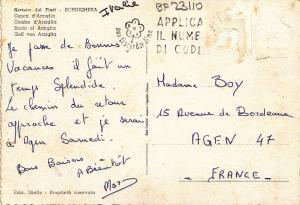 Riviera dei Fiori - BORDIGHERA
Conca d'Arziglia
Combe d'Arziglia
Basin of Arziglia
Golf von Arziglia
Italie
BF23110
APPLICA
IL NUME
DI CODI
Je passe de Bonnes
Vacances il fait un
temps Splendide.
Le chemin du retour
approche et je serai
à Agen Samedi.
Bons Baisers
A Bientôt
Madame BOY
15 Avenue de Bordeaux
AGEN 47
- FRANCE -
Ediz. Gbelle - Proprietà riservata